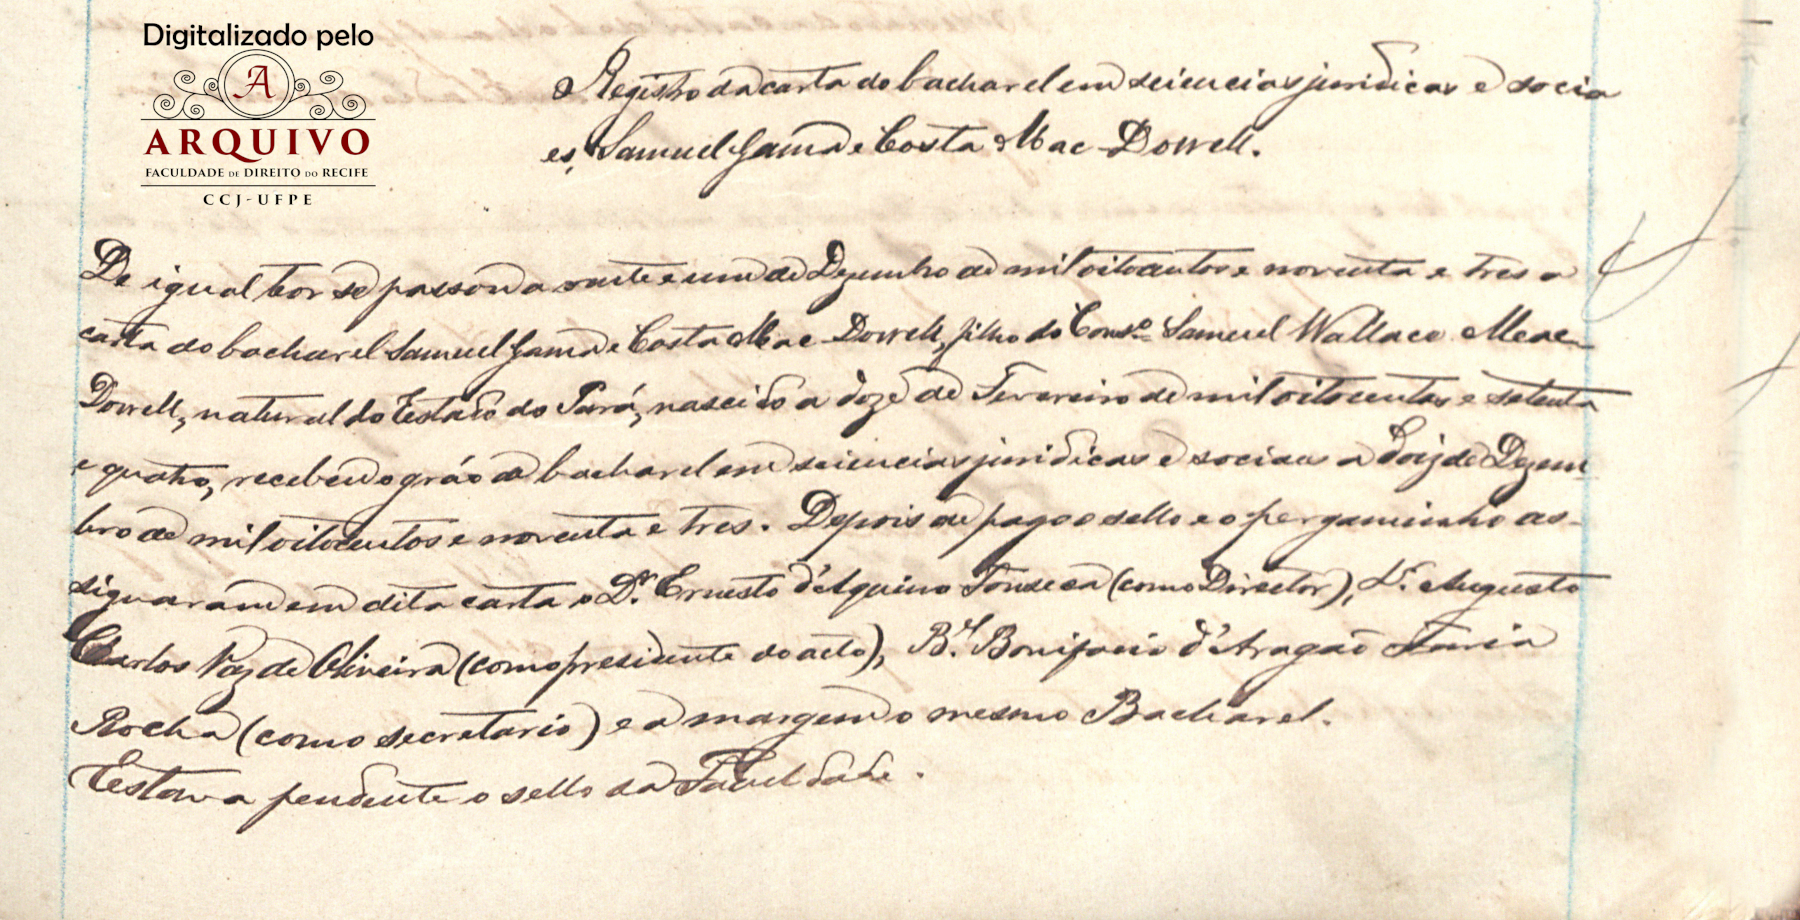 Digitalizado pelo
A
ARQUIVO
FACULDADE DE DIREITO DO RECIFE
CCJ-UFPE
Registro da carta do bacharel em sciencias juridicas e socia
es, Samuel Gama e Costa Mac Dowell.
De igual teor se passou a vinte e um de Dezembro de mil oitocentos e noventa e tres a
carta do bacharel Samuel Gama e Costa Mac Dowell, filho do Conso. Samuel Wallace Mac-
Dowell, natural do Estado do Pará, nascido a doze de Fevereiro de mil oitocentos e setenta
e quatro, recebeu o gráo de bacharel em sciencias juridicas e sociaes a doiz de Dezem-
bro de mil oitocentos e noventa e tres. Depois de pago o sello e o pergaminho as-
signaram em dita carta o Dr. Ernesto d'Aquino Fonseca (como Director), Dr. Augusto
Carlos Vaz de Oliveira (como presidente do acto), Bel. Bonifacio d'Aragaõ Faria
Rocha (como secretario) e a margem o mesmo Bacharel.
Estava pendente o sello da Faculdade.